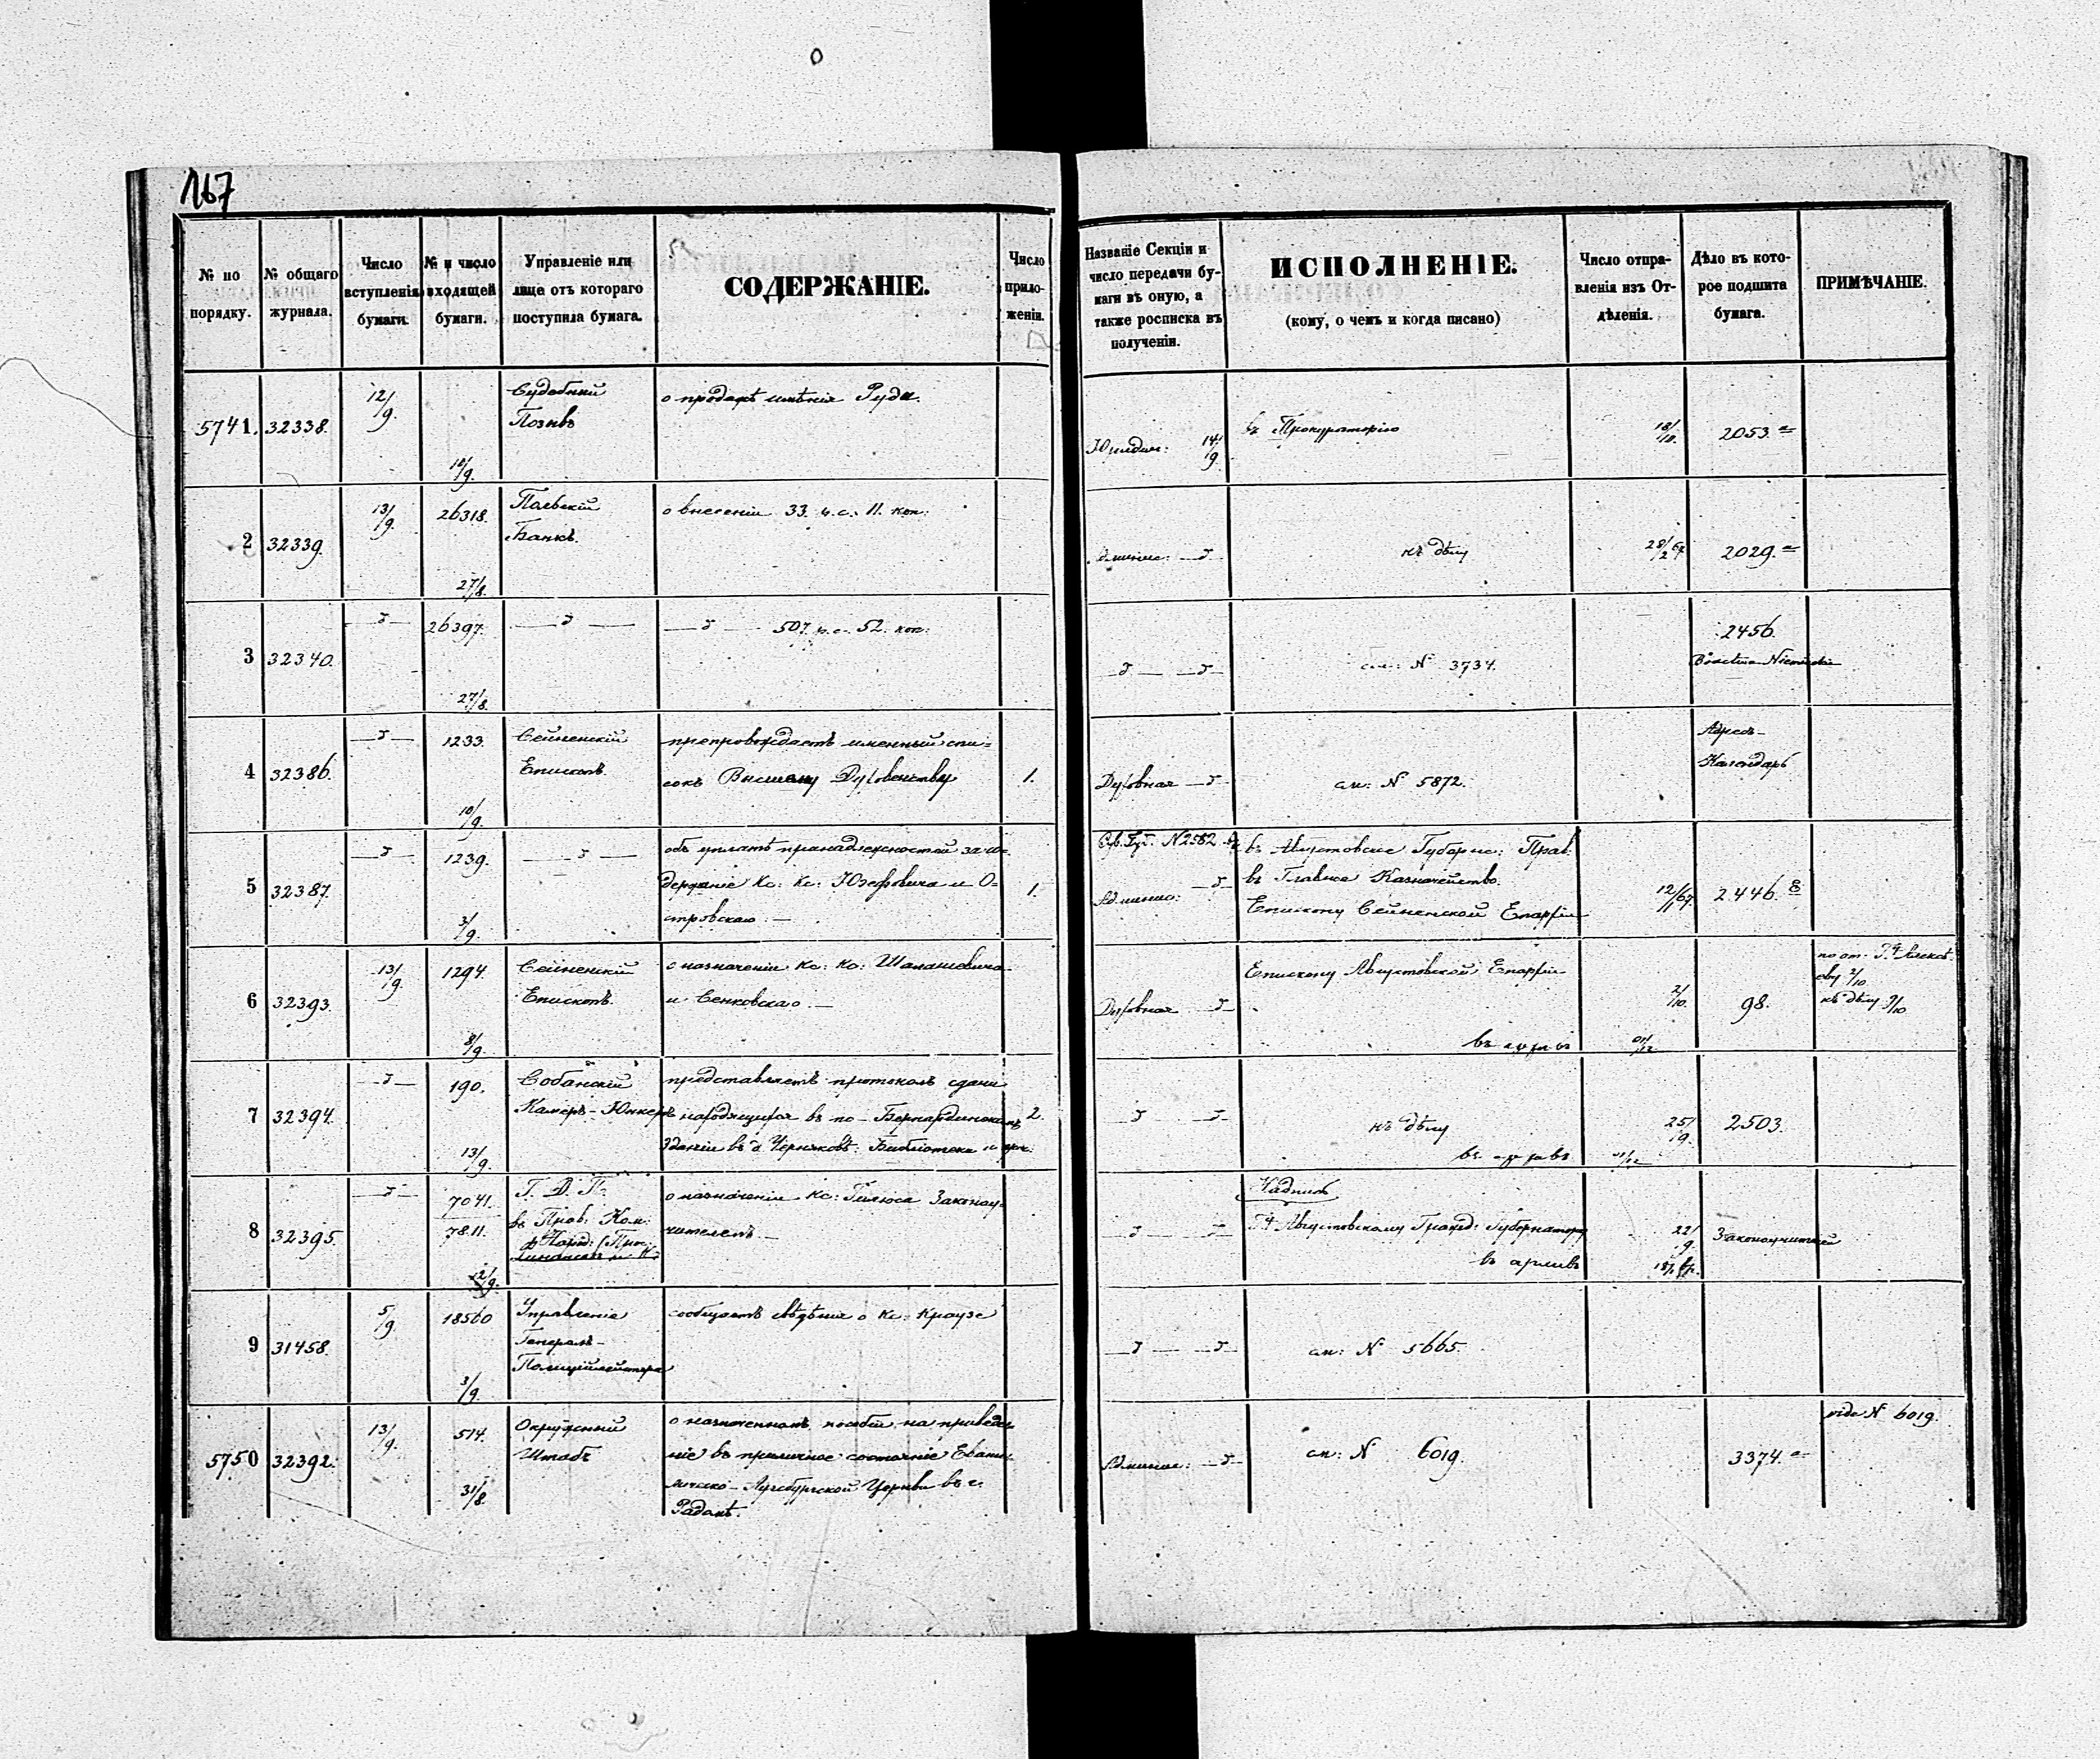 167
№ по порядку.
№ общаго журнала.
Число вступленія бумаги.
№ и число входящей бумаги.
Управленіе или лице отъ котораго поступила бумага.
СОДЕРЖАНІЕ.
Число приложеніи.
Названіе Секціи и число передачи бумаги въ оную, а также росписка въ полученіи.
ИСПОЛНЕНІЕ.
(кому, о чемъ и когда писано)
Число отправленія изъ Отдѣленія.
Дѣло въ которое подшита бумага.
ПРИМѢЧАНІЕ.
5741. 32338. 12/9. 12/9. Судебный Позывъ
о продажѣ имѣнія Руда.
14/9 въ Прокураторію 18/10. 2053.
2 32339. 13/9. 26318. 27/8. Польскій Банкъ.
о внесеніи 33. р.с. 11. коп:
къ дѣлу 28/2 67 2029.
3 32340. 26397. 27/8.
507. р.с. 52. коп:
см: № 3734. 2456.
4 32386. 1233. 10/9. Сейненскій Епископъ.
препровождаетъ именный спи=
сокъ Высшему Духовенству 1.
Духовная см: № 5872. Адресъ-
Календарь
5 32387. 1239. 3/9.
объ уплатѣ принадлежностей за со=
держаніе Кс: Кс: Юзефовича и О=
стровскаго. — 1.
№ 2582
Админис:
въ Августовское Губерн: Прав:
въ Главное Казначейство.
Епископу Сейненской Епархіи
12/11 67. 2446.
6 32393. 13/9. 1294. 8/9. Сейненскій Епископъ.
о назначеніи Кс: Кс:
и Сенковскаго. —
Духовная Епископу Августовской Епархіи
2/10. 98.
къ дѣлу 9/10
въ архивъ
7 32394. 190. 13/9. Собанскій
Камеръ-Юнкеръ
представляетъ протоколъ сдачи
находящихся въ по-Бернардинскомъ 2.
зданіи въ Черняковѣ. Библіотеки и проч.
къ дѣлу 25/9. 2503.
въ архивъ
8 32395. 7041. 7811. 12/9. Г. Д. П.
въ Прав: Ком:
о назначеніи Кс: Гилюса Законоу-
чителемъ. —
Надпись
Августовскому Гражд: Губернатору 22/9. Законоучителей
въ архивъ
9 31458. 5/9. 18560 3/9. Управленіе
Генералъ-
Полиціймейстера
сообщаетъ свѣдѣнія о Кс: Краузе
см: № 5665.
5750 32392. 13/9. 514. 31/8. Окружный
Штабъ
о назначенномъ пособіи на приведе-
ніе въ приличное состояніе Еванг-
лическо-Аугсбургской Церкви въ г.
Админис: см: № 6019. 3374. vide № 6019.